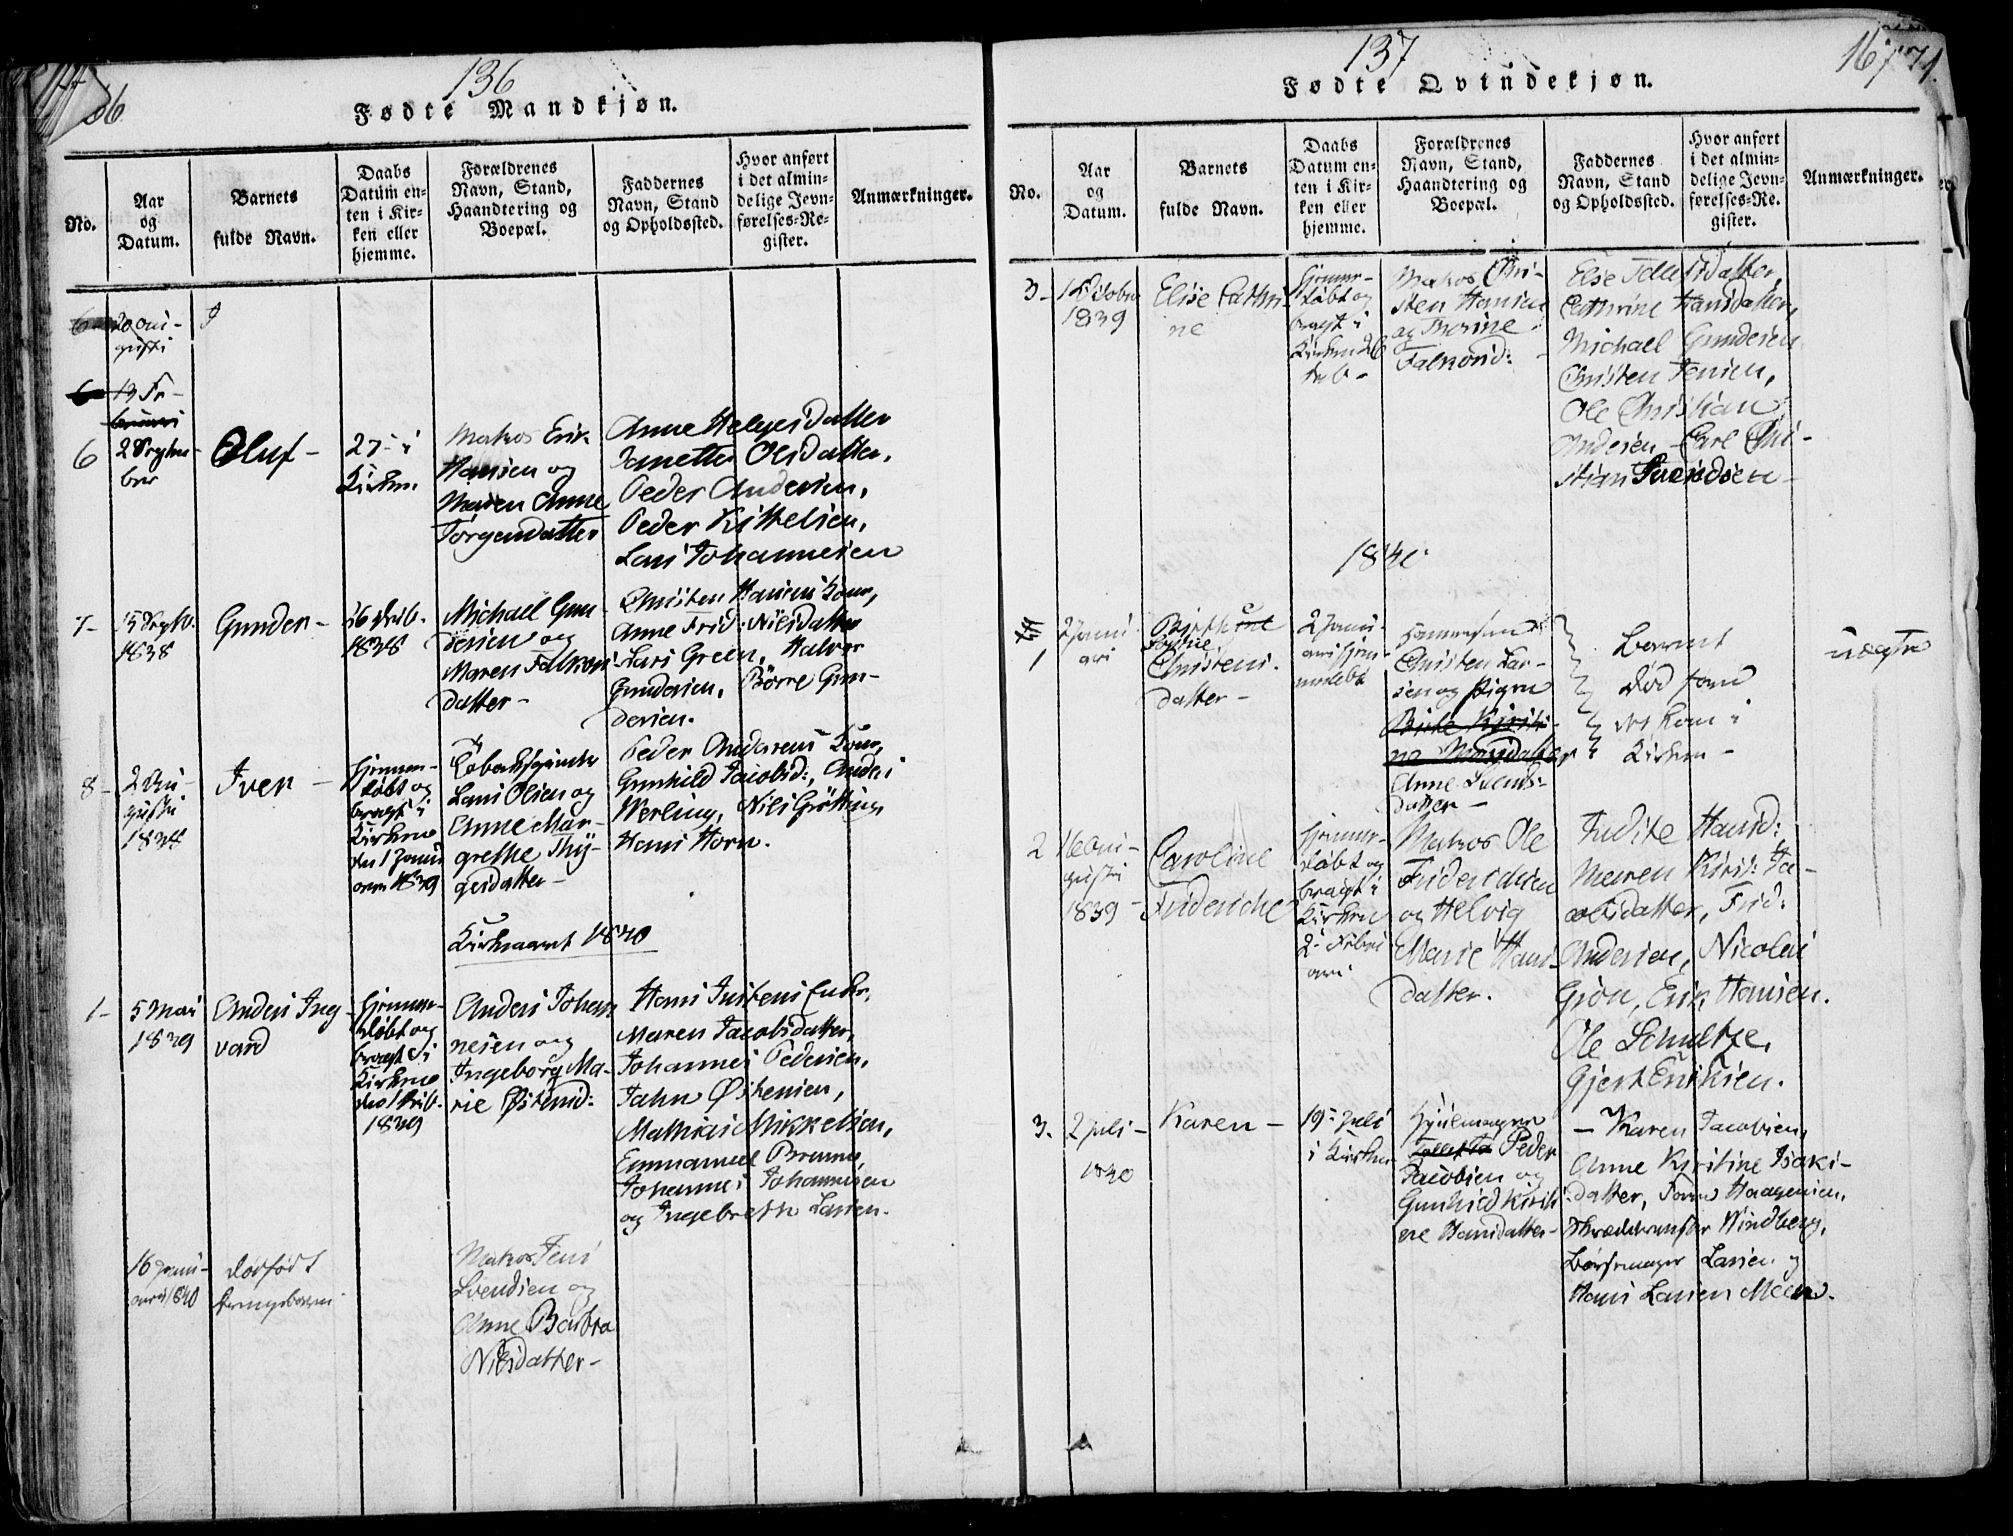 136
Fødte Mandkjøn.
No.
Aar
og
Datum.
Barnets
fulde Navn.
Daabs
Datum en-
ten i Kir-
ken eller
hjemme.
Forældrenes
Navn, Stand,
Haandtering og
Boepæl.
Faddernes
Navn, Stand
og Opholdssted.
Hvor anført
i det almin-
delige Jevn-
førelses-Re-
gister.
Anmærkninger.
6
Oluf -
27 - i
Kirken.
Matros Erik
Hansen og
Maren Anne
Jørgensdatter
Anne Helgesdatter
Janette Olsdatter,
Peder Andersen,
Peder Kittelsen,
Lars Johannesen
7-
1838
Gunder -
1838
Michael Gun-
dersen og
Maren Falkors-
datter -
Christen Hansens Kone,
Anne Frid: Nilsdatter
Lars Green, Halvor
Gundersen, Børre Gun-
dersen.
8-
2 Au-
gusti
1838
Iver -
Hjemme-
døbt og
bragt i
Kirken
den 1 Janu
1839
Lars Olsen og
Anne Mar-
grethe Thy-
gesdatter -
Peder Andersens Kone,
Gunhild Jacobsd:, Anders
Werling, Nils Grøtting,
Hans Horn.
Kirkeaaret 1840
1-
5 Mai
1839
Anders Ing-
vard
Hjemme-
døbt og
bragt i
Kirken
1839
Anders Johan-
nesen og
Ingeborg Ma-
rie Østensd:
Hans Justens Enke,
Maren Jacobsdatter,
Johannes Pedersen,
Jahn Østensen,
Mathias Mikkelsen,
Emmanuel Bremer,
Johannes Johannesen
og Ingebreth Larsen.
16 Janu-
ari 1840
dødfødt
Drengebarn
Matros Jens
Svendsen og
Anne Barbra
Nilsdatter -
137
1671.
Fødte Qvindekjøn.
No.
Aar
og
Datum.
Barnets
fulde Navn.
Daabs
Datum en-
ten i Kir-
ken eller
hjemme.
Forældrenes
Navn, Stand,
Haandtering og
Boepæl.
Faddernes
Navn, Stand
og Opholdssted.
Hvor anført
i det almin-
delige Jevn-
førelses-Re-
gister.
Anmærkninger.
3-
1839
Elise Cathri
ne
Hjemme-
døbt og
bragt i
Kirken
Matros Chri-
sten Hansen
og Thorine
Falkorsd:
Else Tollefsdatter,
Cathrine Hansdatter,
Michael Gundersen
Christen Jensen,
Ole Christian
Andersen - Carl Chri-
stian Svendsen -
1840
1
2 Janu
ari
Christens-
datter -
2 Janu-
ari hjem-
medøbt
Christen Lar-
sen og Pigen
Anne Svends-
datter -
Barnet
død førend
det kom i
Kirken -
uægte
2
16 Au-
gusti
1839 -
Caroline
Frideriche
Hjemme-
døbt og
bragt i
Kirken
2 Febru
ari
Matros Ole
Fridrichsen
og Helvig
Marie Hans-
datter.
Judite Hansd:
Maren Kirst: Ja-
cobsdatter, Frid:
Andersen, Nicolai
Grøn, Erik Hansen.
Ole Schultze,
Gjert Eriksen.
3.
2 Juli -
1840
Karen -
19 - Juli
i Kirken
Hjulmager
Peder
Jacobsen og
Gunhild Kirsti
ne Hansdatter -
- Karen Jacobsen,
Anne Kirstine Isaks-
datter, Søren Haagensen,
Skræddermester Windberg,
Børsemager Larsen og
Hans Larsen Meen.